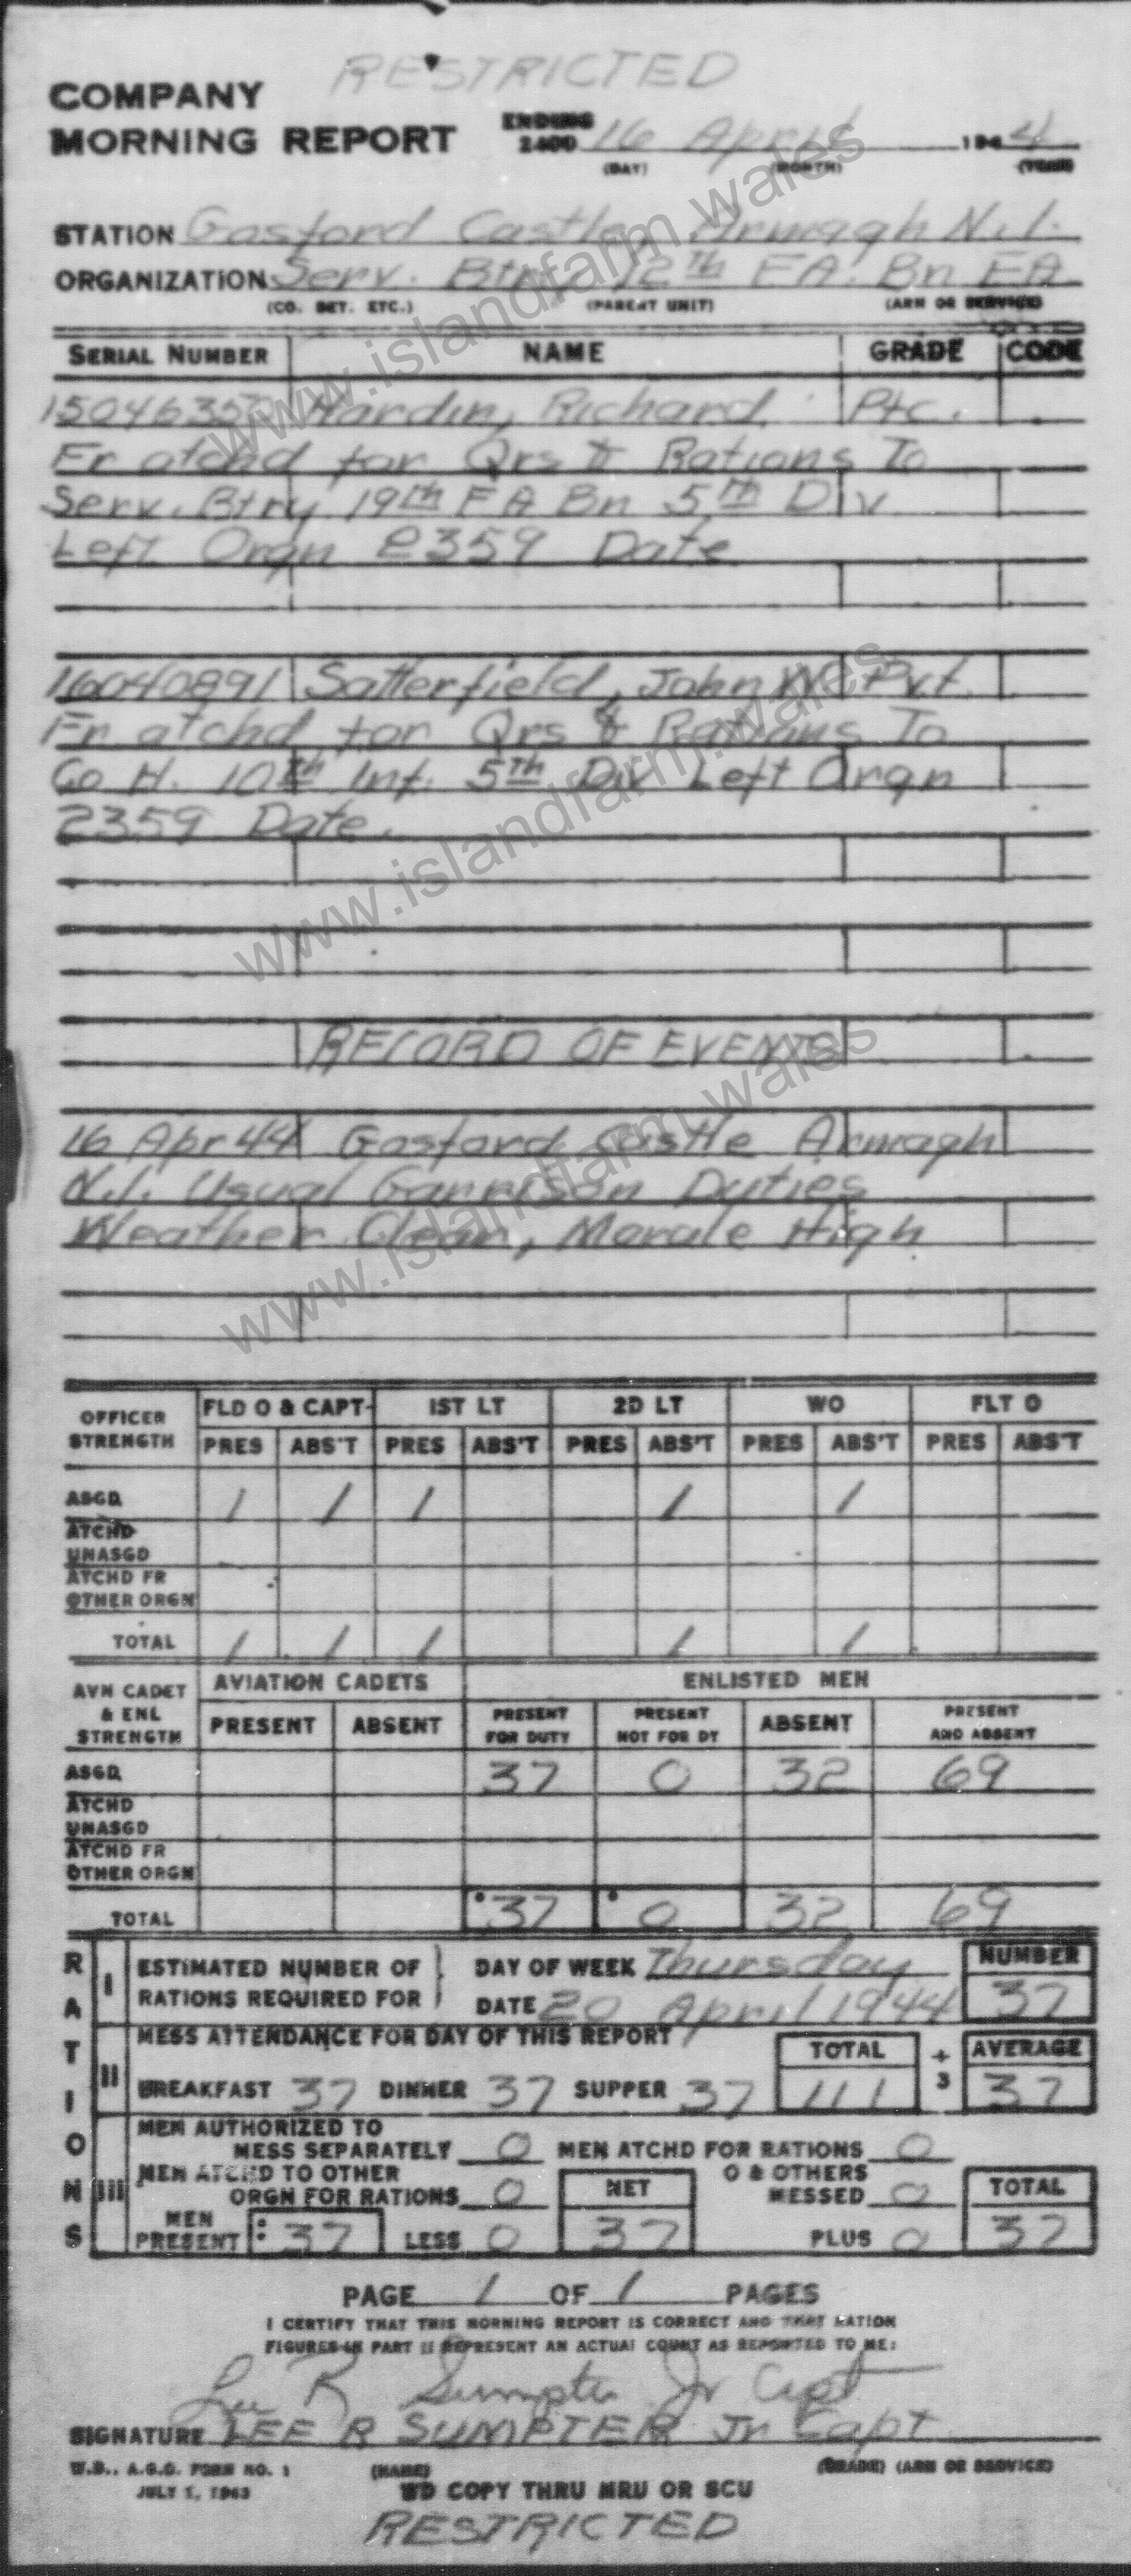 RESTRICTED
COMPANY
MORNING REPORT ENDING 2400 16 April 1944
(DAY) (MONTH) (YEAR)
STATION Gosford Castle, Armagh N.I.
ORGANIZATION Serv. Btry 12th FA. Bn FA
(CO. DET. ETC.) (PARENT UNIT) (ARM OR SERVICE)
SERIAL NUMBER NAME GRADE CODE
Hardin, Richard Pfc.
Fr atchd for Qrs & Rations To
Serv. Btry 19th FA Bn 5th Div
Left Orgn 2359 Date
16040891 Satterfield, John W. Pvt
Fr atchd for Qrs & Rations To
Co H. 10th Inf. 5th Div Left Orgn
2359 Date.
RECORD OF EVENTS
16 Apr 44 Gosford Castle Armagh
N.I. Usual Garrison Duties
Weather Clear, Morale High
OFFICER STRENGTH FLD O & CAPT 1ST LT 2D LT WO FLT O
PRES ABS'T PRES ABS'T PRES ABS'T PRES ABS'T PRES ABS'T
ASGD 1 1 1 1 1
ATCHD UNASGD
ATCHD FR OTHER ORGN
TOTAL 1 1 1 1 1
AVN CADET & ENL STRENGTH AVIATION CADETS ENLISTED MEN
PRESENT ABSENT PRESENT FOR DUTY PRESENT NOT FOR DY ABSENT PRESENT AND ABSENT
ASGD 37 0 32 69
ATCHD UNASGD
ATCHD FR OTHER ORGN
TOTAL 37 0 32 69
RATIONS
I ESTIMATED NUMBER OF RATIONS REQUIRED FOR } DAY OF WEEK Thursday NUMBER
DATE 20 April 1944 37
II MESS ATTENDANCE FOR DAY OF THIS REPORT TOTAL ÷ 3 AVERAGE
BREAKFAST 37 DINNER 37 SUPPER 37 111 37
III MEN AUTHORIZED TO
MESS SEPARATELY 0 MEN ATCHD FOR RATIONS 0
MEN ATCHD TO OTHER ORGN FOR RATIONS 0 NET O & OTHERS MESSED 0 TOTAL
MEN PRESENT 37 LESS 0 37 PLUS 0 37
PAGE 1 OF 1 PAGES
I CERTIFY THAT THIS MORNING REPORT IS CORRECT AND THAT RATION
FIGURES IN PART II REPRESENT AN ACTUAL COUNT AS REPORTED TO ME:
Lee R Sumpter Jr Capt
SIGNATURE LEE R SUMPTER Jr Capt
W.D., A.G.O. FORM NO. 1 (NAME) (GRADE) (ARM OR SERVICE)
JULY 1, 1943 WD COPY THRU MRU OR SCU
RESTRICTED
www.islandfarm.wales
www.islandfarm.wales
www.islandfarm.wales